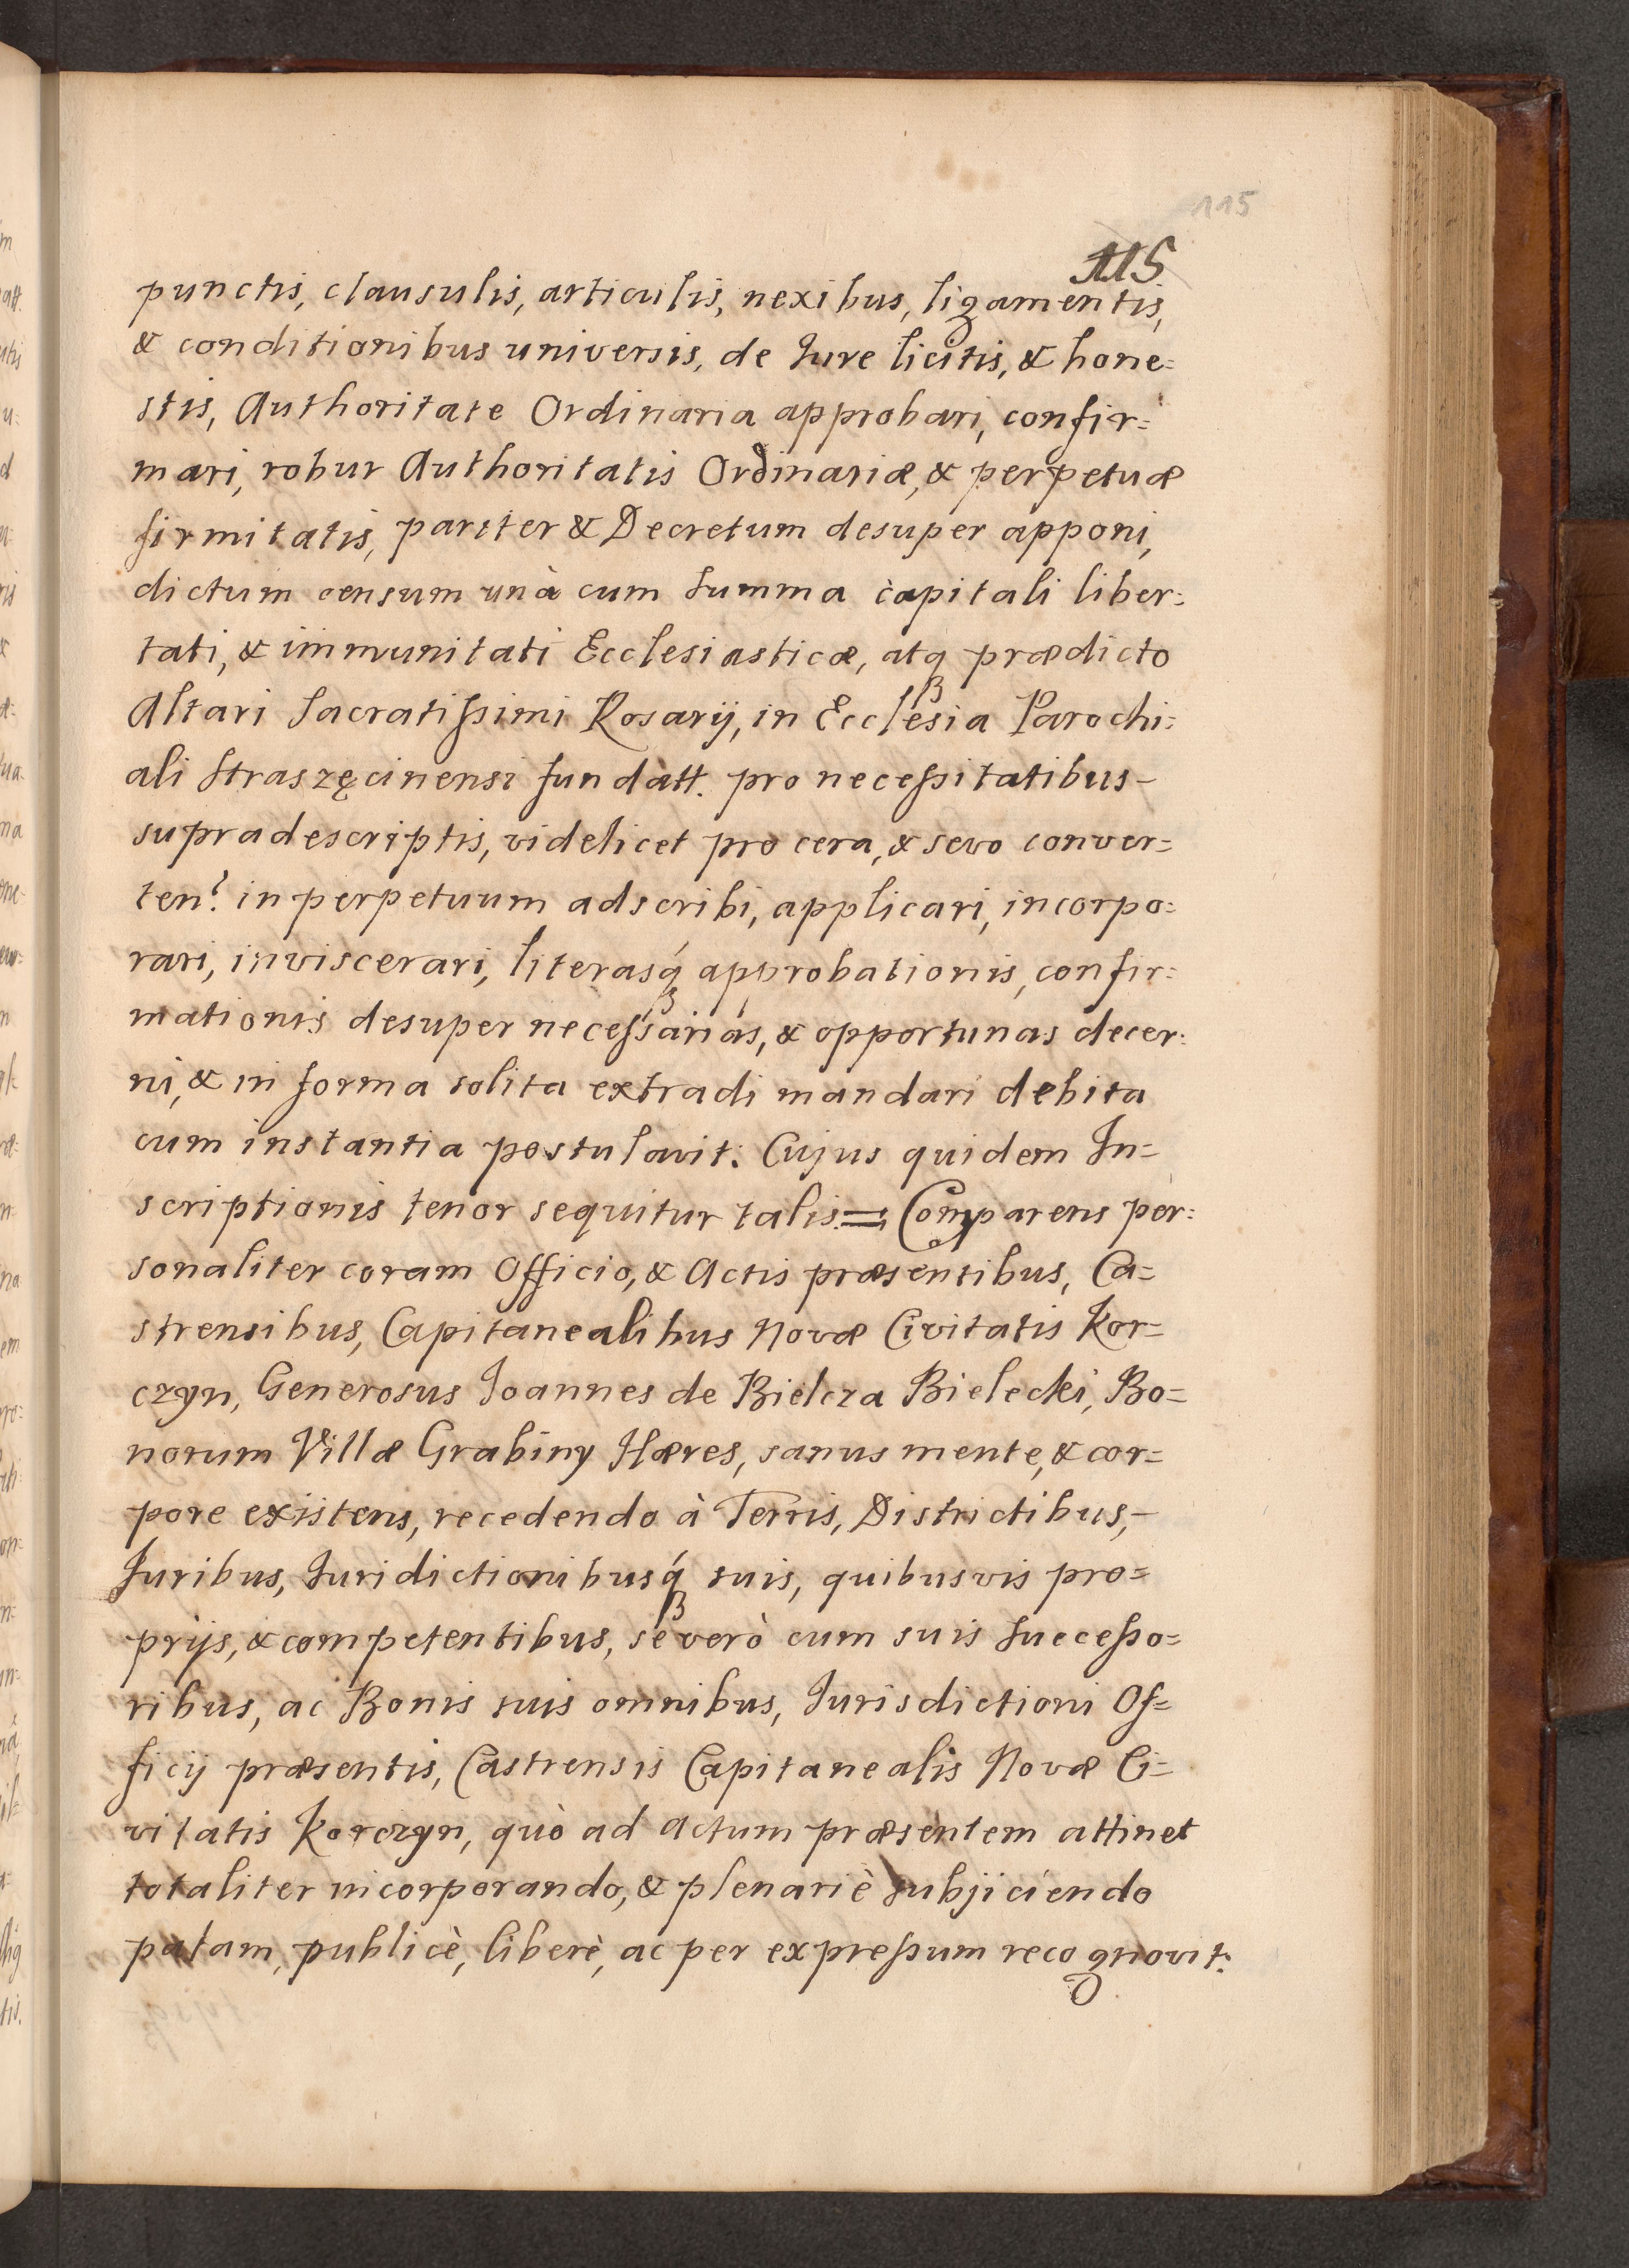 115
115
punctis, clausulis, articulis, nexibus, ligamentis,
& conditionibus universis, de Jure licitis, & hone=
stis, Authoritate Ordinaria approbari, confir=
mari, robur Authoritatis Ordinariæ, & perpetuæ
firmitatis, pariter & Decretum desuper apponi,
dictum censum unà cum Summa càpitali liber=
tati, & immunitati Ecclesiasticæ, atq́ prædicto
Altari Sacratißimi Rosarij, in Ecclesia Parochi=
ali Straszęcinensi fundatt. pro neceßitatibus-
supradescriptis, videlicet pro cera, & sevo conver=
ten? in perpetuum adscribi, applicari, incorpo=
rari, inviscerari, literasq́ approbationis, confir=
mationis desuper necessarias, & opportunas decer=
ni, & in forma solita extradi mandari debita
cum instantia postulavit: Cujus quidem In=
scriptionis tenor sequitur talis.= Comparens per=
sonaliter coram Officio, & Actis præsentibus, Ca=
strensibus, Capitanealibus Novæ Civitatis Kor=
czyn, Generosus Joannes de Bielcza Bielecki, Bo=
norum Villæ Grabiny Hæres, sanus mente, & cor=
pore existens, recedendo à Terris, Districtibus,-
Juribus, Juridictionibusq́ suis, quibusvis pro=
prijs, & competentibus, se verò cum suis Succeßo=
ribus, ac Bonis suis omnibus, Jurisdictioni Of=
ficij præsentis, Castrensis Capitanealis Novæ Ci=
vitatis Korczyn, quò ad actum præsentem attinet
totaliter incorporando, & plenariè subjiciendo
palam, publicè, liberè, ac per expreßum recognovit: